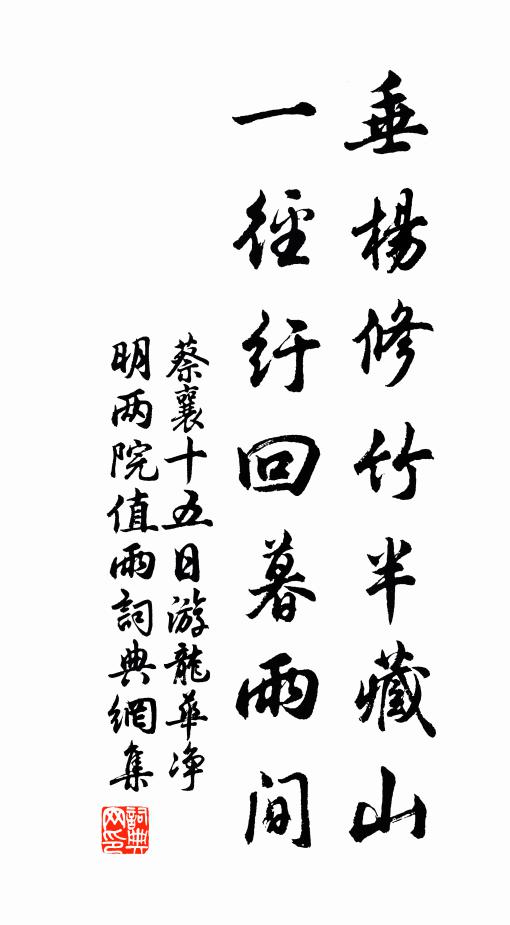 垂楊修竹半藏山
一徑紆回暮雨間
蔡襄十五日游龍華净
明两院值雨詞典網集
詞典
网印